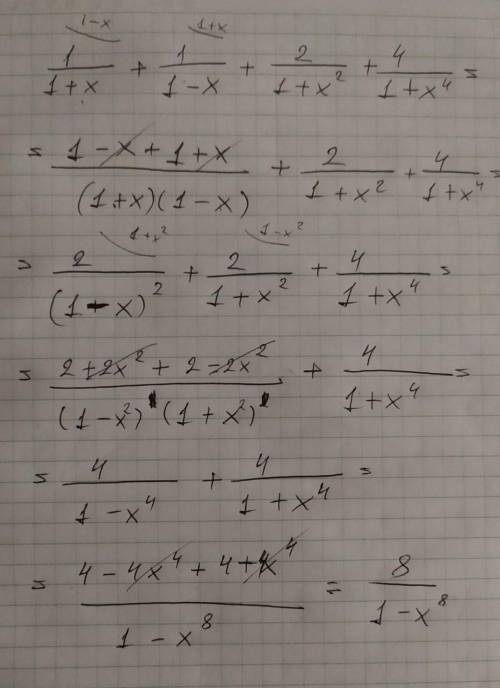 1-x 1+x
1/(1+x) + 1/(1-x) + 2/(1+x²) + 4/(1+x⁴) =
= (1-x+1+x)/((1+x)(1-x)) + 2/(1+x²) + 4/(1+x⁴) =
1+x² 1-x²
= 2/(1-x)² + 2/(1+x²) + 4/(1+x⁴) =
= (2+2x²+2-2x²)/((1-x²)(1+x²)) + 4/(1+x⁴) =
= 4/(1-x⁴) + 4/(1+x⁴) =
= (4-4x⁴+4+4x⁴)/(1-x⁸) = 8/(1-x⁸)